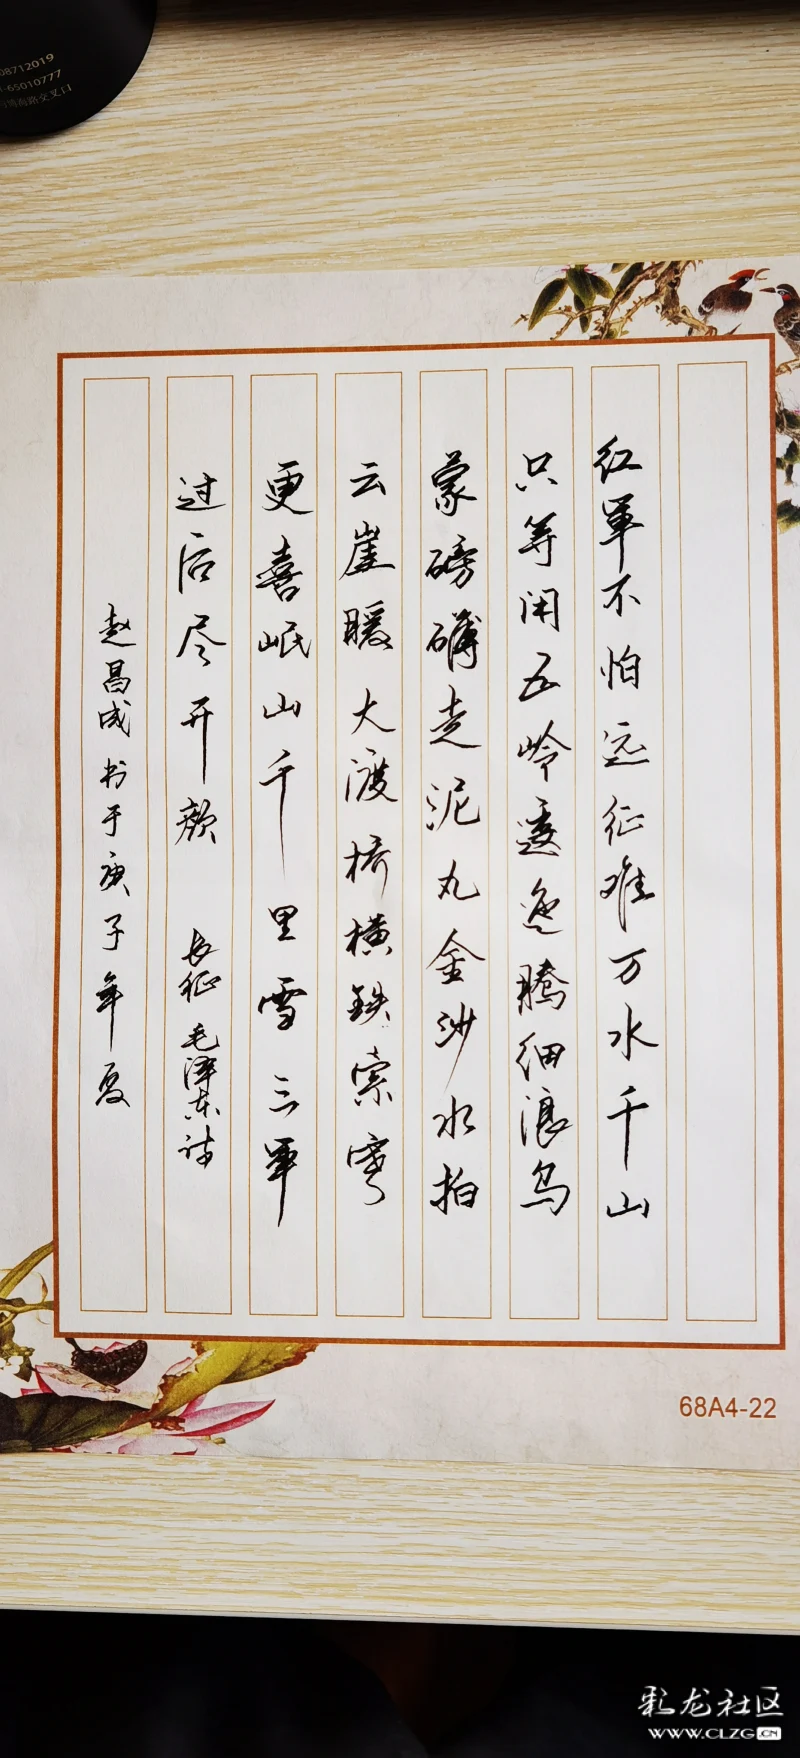 08712019
-65010777
路交叉口
红军不怕远征难万水千山
只等闲五岭逶迤腾细浪乌
蒙磅礴走泥丸金沙水拍
云崖暖大渡桥横铁索寒
更喜岷山千里雪三军
过后尽开颜 长征 毛泽东诗
赵昌成书于庚子年夏
68A4-22
彩龙社区
WWW.CLZG.CN